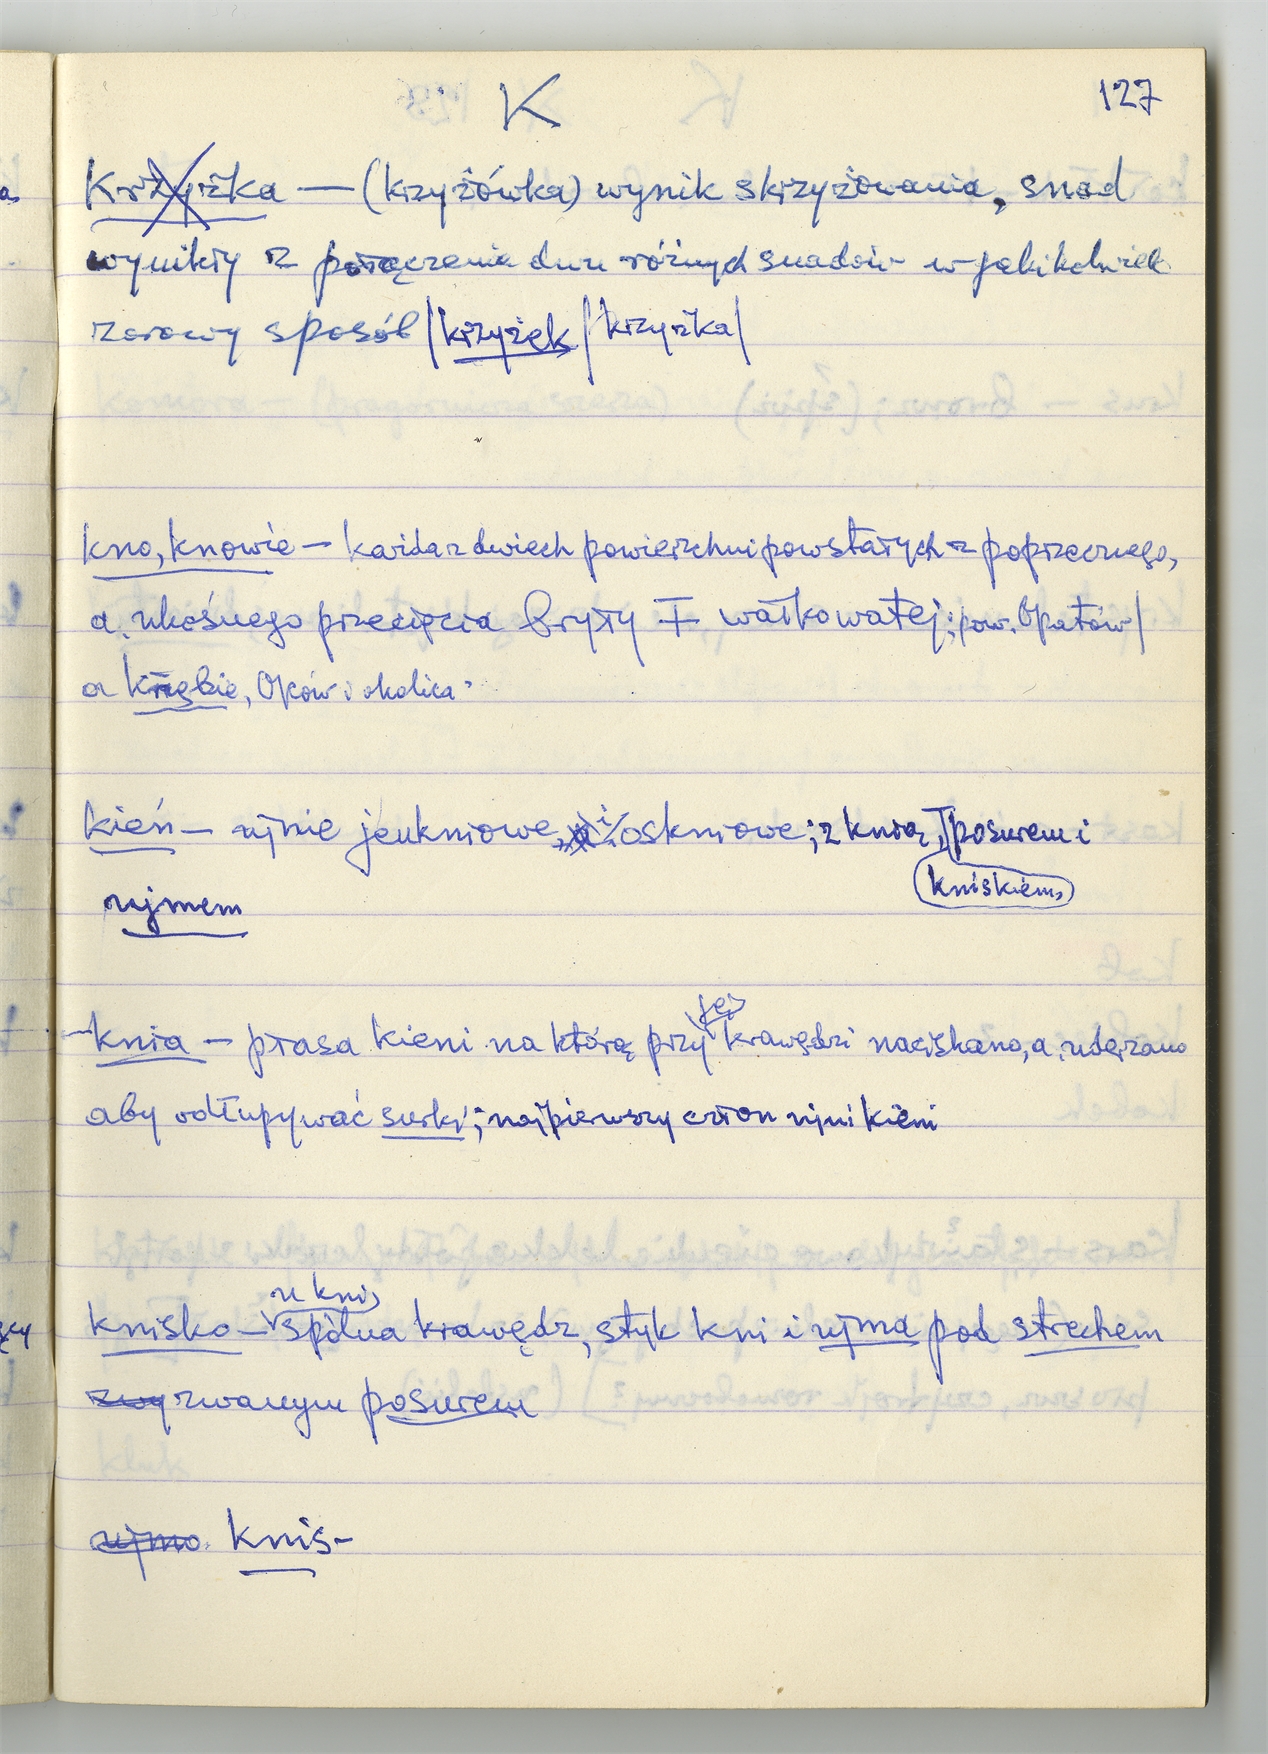 K 127
Krzyżka — (krzyżówka) wynik skrzyżowania, snad
wynikły z połączenia dwu różnych snadów w jakikolwiek
zorowy sposób /krzyżek/ krzyżka/
kno, knowie — każda z dwiech powierzchni powstałych z poprzecznego,
a. ukośnego przecięcia bryły I wałkowatej; pow. Opatów/
a kłębie, Opów i okolica.
kień — ujnie jeukniowe, i oskniowe; z knią, kniskiem, posurem i
ujmem
knia — płasa kieni na którą przy jej krawędzi naciskano, a. uderzano
aby odłupywać surki; najpierwszy człon ujni kieni
knisko — u kni, spólna krawędź, styk kni i ujma pod strechem
zwy zwanym posurem
ujmo. Knis-